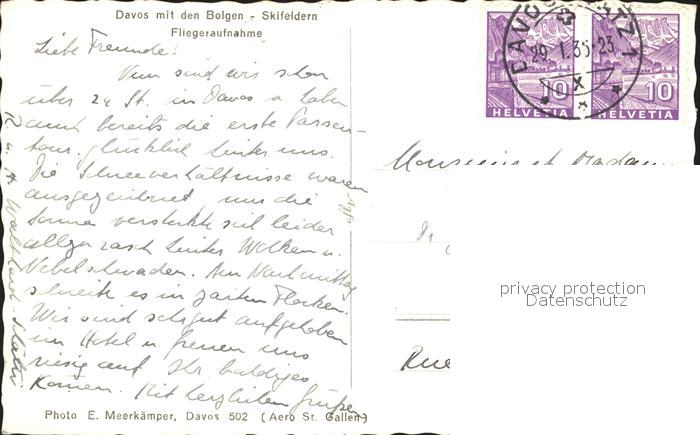 Davos mit den Bolgen - Skifeldern
Fliegeraufnahme
Liebe Freunde!
Nun sind wir schon
über 24 St. in Davos u. haben
auch bereits die erste Parsenn-
tour glücklich hinter uns.
Die Schneeverhältnisse waren
ausgezeichnet nur die
Sonne versteckte sich leider
allzu rasch hinter Wolken u.
Nebelschwaden. Am Nachmittag
schneite es in zarten Flocken.
Wir sind sehr gut aufgehoben
im Hotel u. freuen uns
riesig auf Ihr baldiges
Kommen. Mit herzlichen Grüßen
Photo E. Meerkämper, Davos 502 (Aero St. Gallen)
DAVOS PLATZ 1
29. I. 35-23
10
HELVETIA
10
HELVETIA
Monsieur et Madame
Rue
privacy protection
Datenschutz